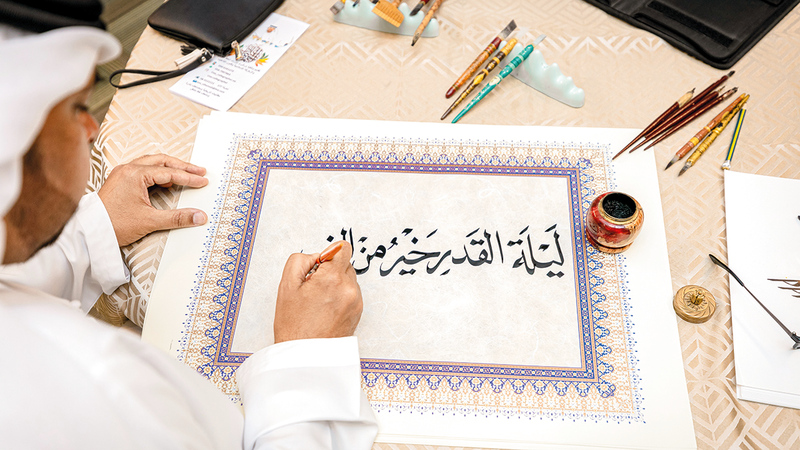 لَيْلَةُ القَدرِ خَيْرٌ مِنْ